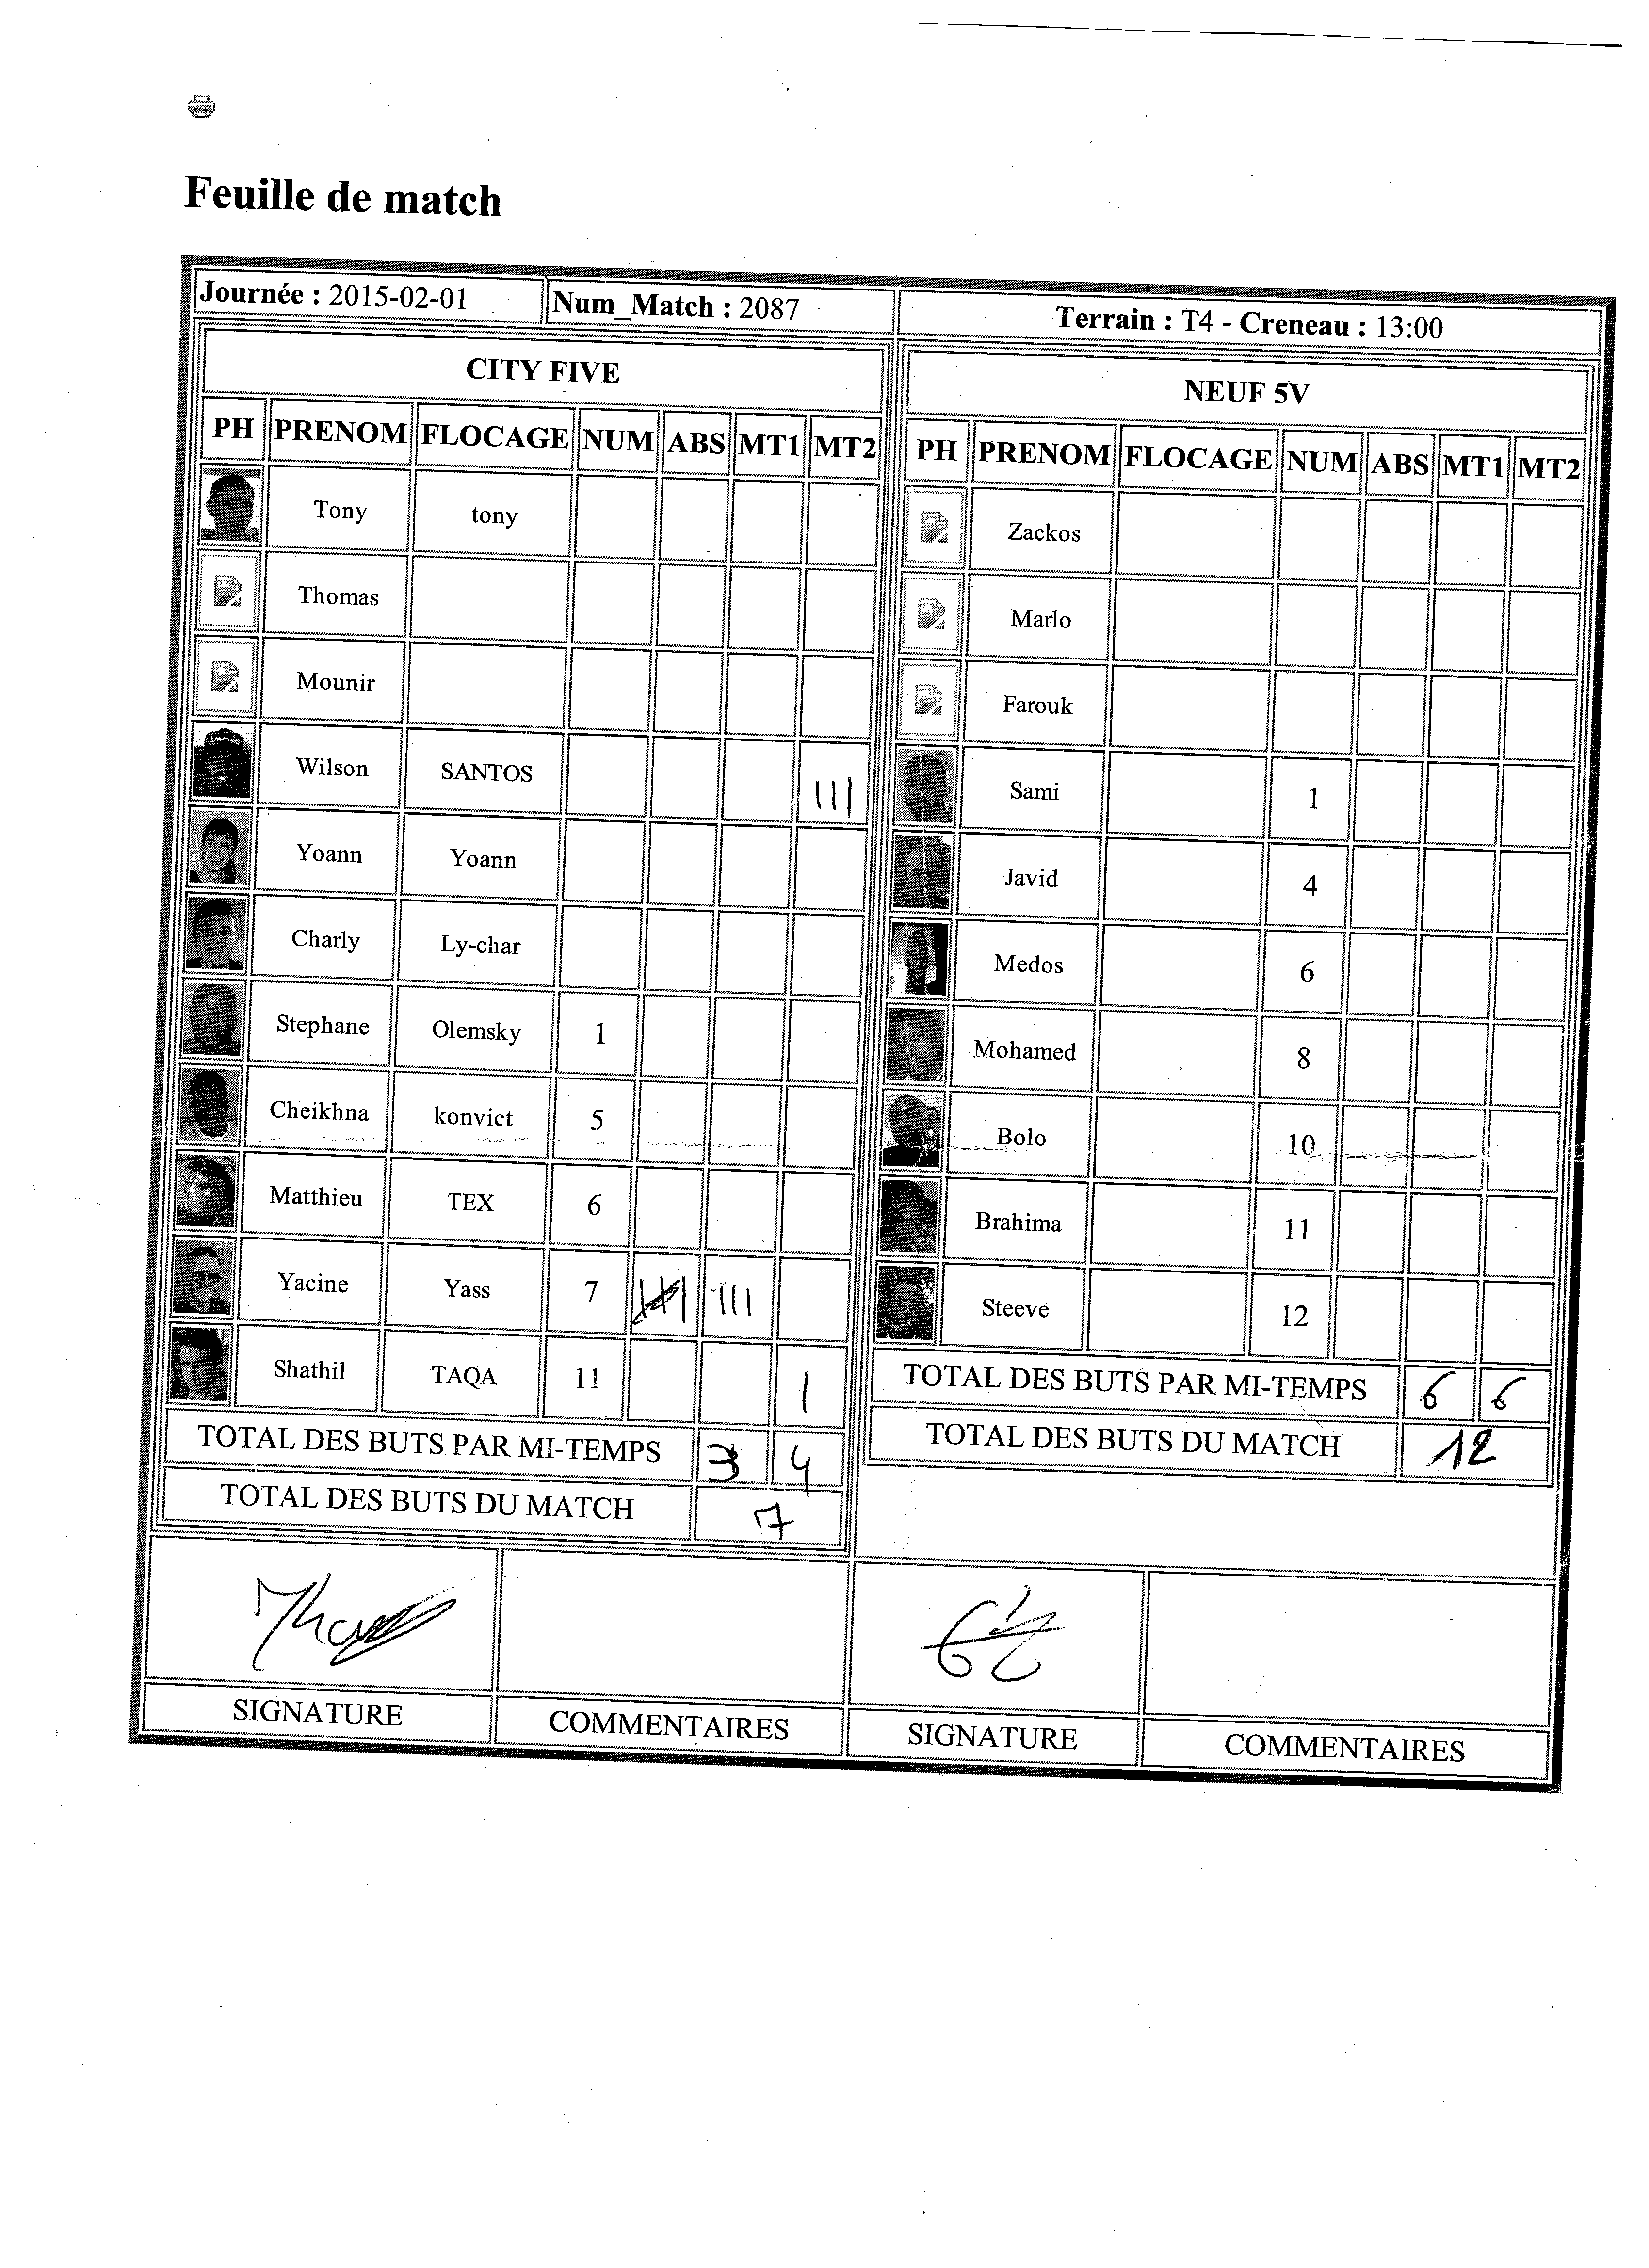 Feuille de match
Journée : 2015-02-01 Num_Match : 2087 Terrain : T4 - Creneau : 13:00
CITY FIVE
PH PRENOM FLOCAGE NUM ABS MT1 MT2
Tony tony
Thomas
Mounir
Wilson SANTOS III
Yoann Yoann
Charly Ly-char
Stephane Olemsky 1
Cheikhna konvict 5
Matthieu TEX 6
Yacine Yass 7 III
Shathil TAQA 11 I
TOTAL DES BUTS PAR MI-TEMPS 3 4
TOTAL DES BUTS DU MATCH 7
NEUF 5V
PH PRENOM FLOCAGE NUM ABS MT1 MT2
Zackos
Marlo
Farouk
Sami 1
Javid 4
Medos 6
Mohamed 8
Bolo 10
Brahima 11
Steeve 12
TOTAL DES BUTS PAR MI-TEMPS 6 6
TOTAL DES BUTS DU MATCH 12
SIGNATURE COMMENTAIRES SIGNATURE COMMENTAIRES